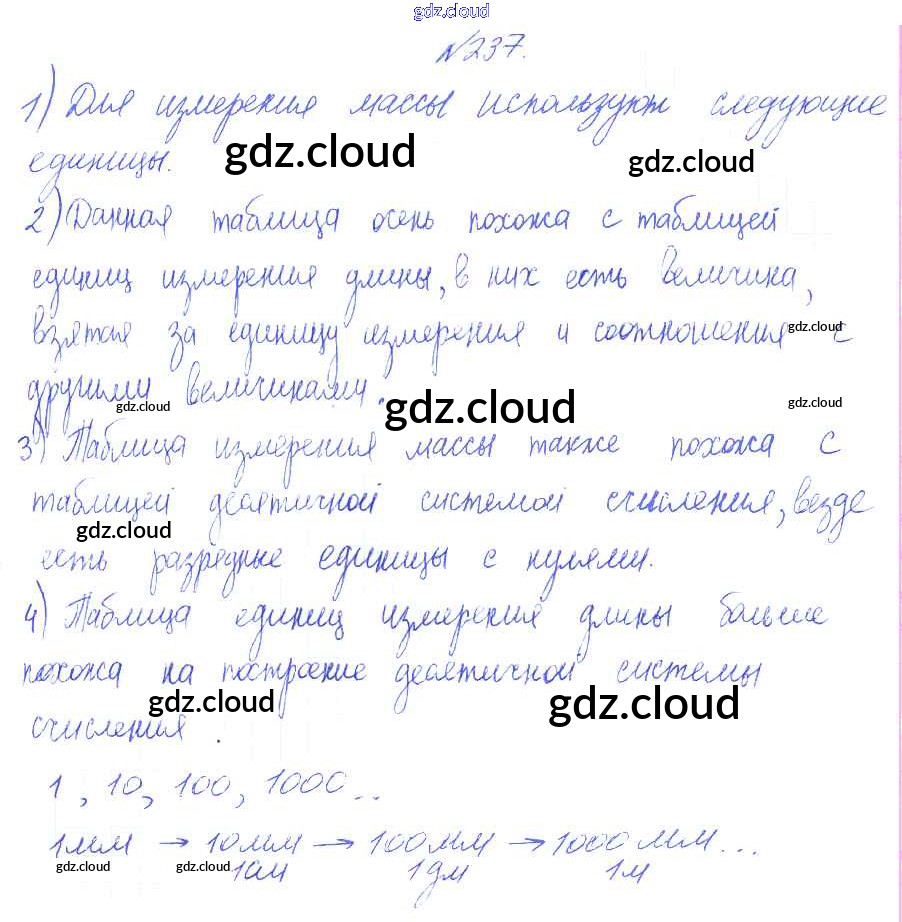 gdz.cloud
№237.
1) Для измерения массы используют следующие
gdz.cloud gdz.cloud
единицы.
2) Данная таблица осень похожа с таблицей
единиц измерения длины, в них есть величина,
взятая за единицу измерения и соотношения с
gdz.cloud
другими величинами.
gdz.cloud gdz.cloud gdz.cloud
3) Таблица измерения массы также похожа с
таблицей десятичной системой счисления, везде
gdz.cloud
есть разрядные единицы с нулями.
4) Таблица единиц измерения длины больше
похожа на построение десятичной системы
gdz.cloud gdz.cloud
счисления.
1, 10, 100, 1000...
1мм → 10мм → 100мм → 1000мм...
gdz.cloud gdz.cloud
1см 1дм 1м